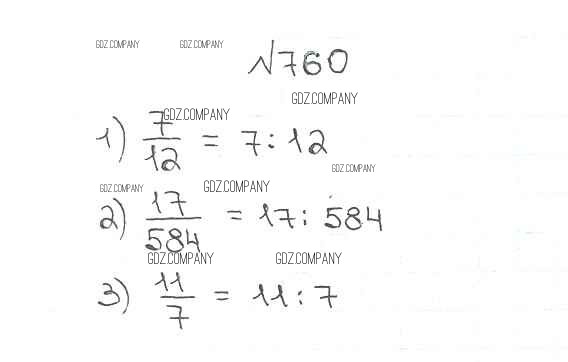 GDZ.COMPANY GDZ.COMPANY
№760
GDZ.COMPANY
GDZ.COMPANY
1) 7/12 = 7 : 12
GDZ.COMPANY
GDZ.COMPANY GDZ.COMPANY
2) 17/584 = 17 : 584
GDZ.COMPANY GDZ.COMPANY
3) 11/7 = 11 : 7